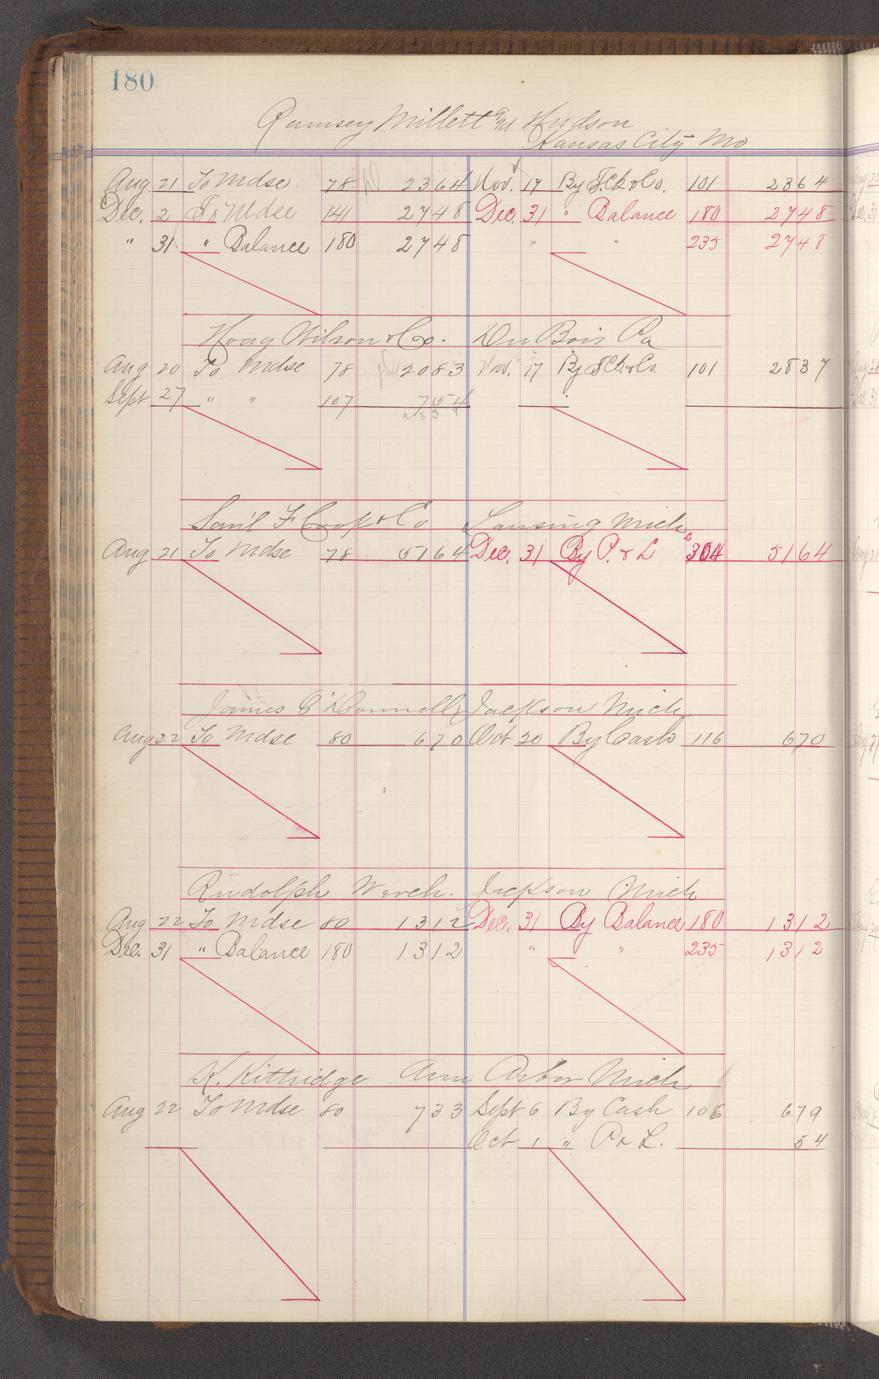 180
Ramsey Millett and Hudson
Kansas City Mo
Aug 21 To Mdse 78 2364 Nov. 17 By F.C.D. & Co. 101 2364
Dec. 2 To Mdse 141 2748 Dec. 31 " Balance 180 2748
" 31 " Balance 180 2748 " " 235 2748
Hoag Wilson & Co. Du Bois Pa
Aug 20 To Mdse 78 2083 Nov. 17 By & Co. 101 2837
Sept 27 " " 107 754
2837
Sam'l F Cook & Co Lansing Mich
Aug 21 To Mdse 78 5164 Dec. 31 By P. & L 304 5164
James O'Donnell Jackson Mich
Aug 22 To Mdse 80 670 Oct 20 By Cash 116 670
Rudolph Werch. Jackson Mich
Aug 22 To Mdse 80 1312 Dec. 31 By Balance 180 1312
Dec. 31 " Balance 180 1312 " " 235 1312
K. Kittridge Ann Arbor Mich
Aug 22 To Mdse 80 733 Sept 6 By Cash 106 679
Oct 1 " P & L. 54